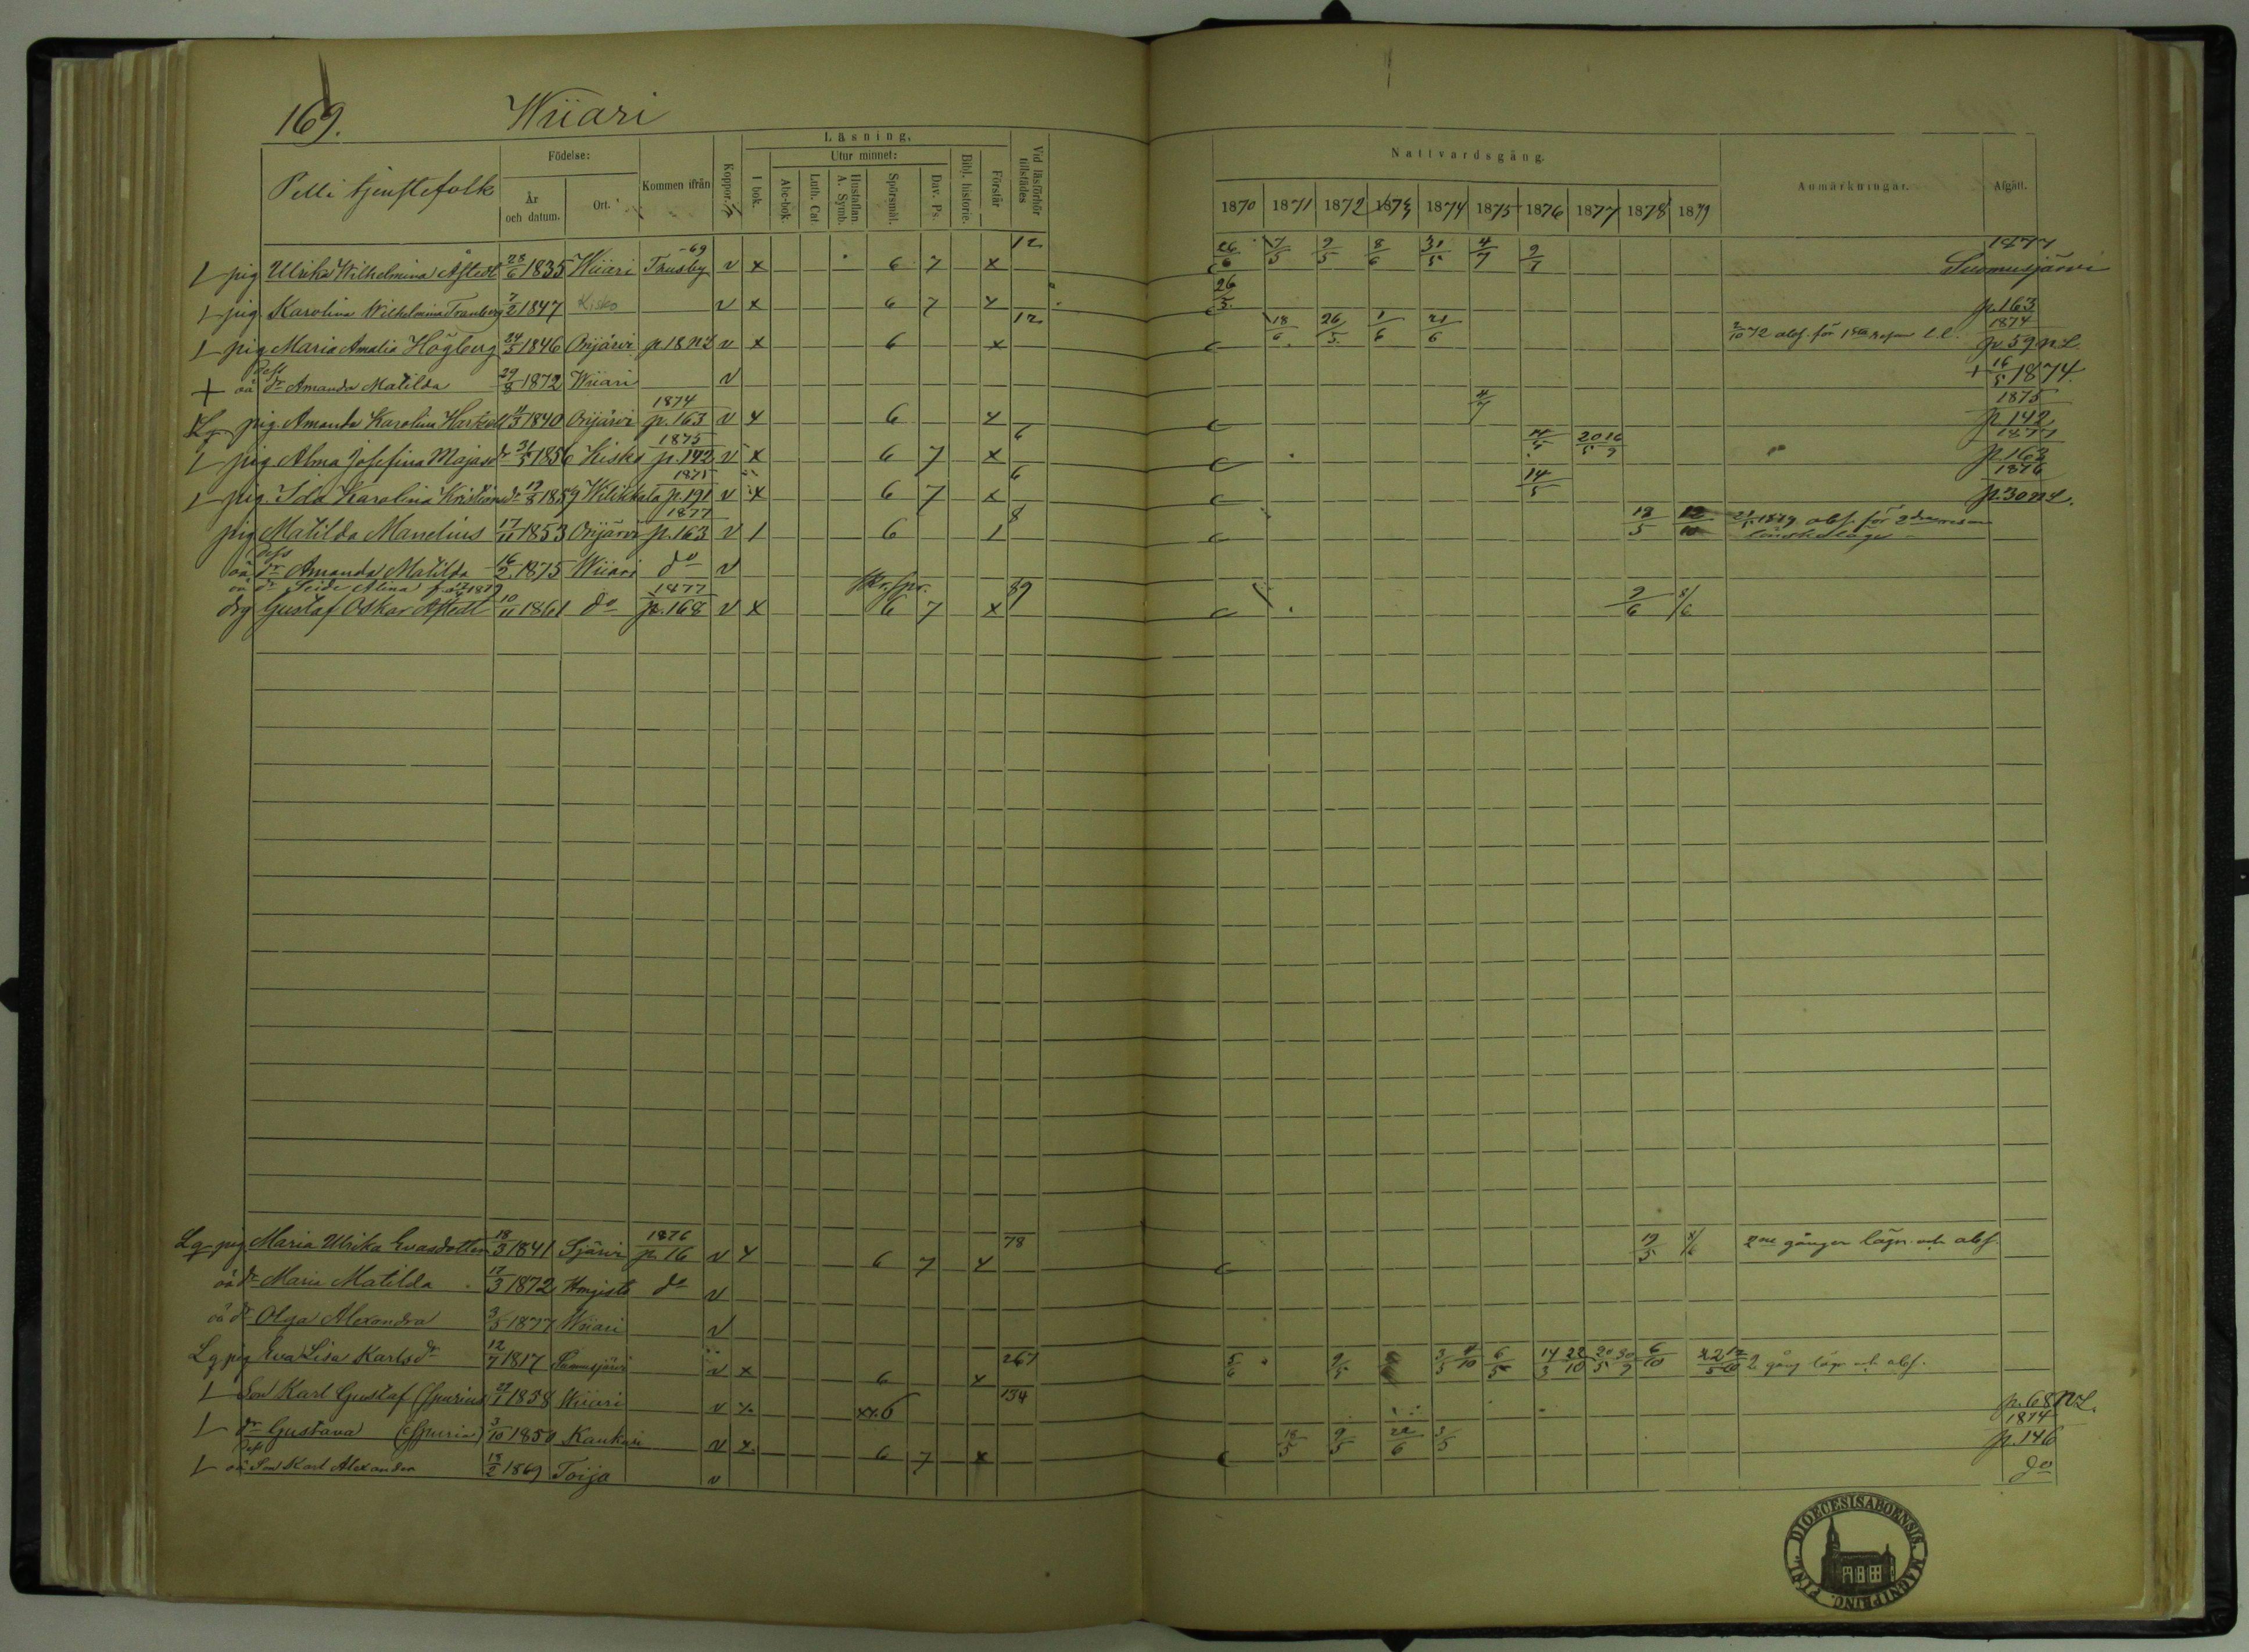 169. Wiiari
Pelli tjenstefolk
Födelse:
År och datum.
Ort.
Kommen ifrån
Koppor.
Läsning.
I bok.
Utur minnet:
Abc-bok
Luth. Cat.
Hustaflan. A. Symb.
Spörsmål.
Dav. Ps.
Bibl. historie.
Förstår
Vid läsförhör tillstädes
Nattvardsgång.
1870 1871 1872 1873 1874 1875 1876 1877 1878 1879
Anmärkningar.
Afgått.
pig Ulrika Wilhelmina Åstedt 23/6 1835 Wiiari -69 Thusby v x 6 7 x 12 26/6 7/5 9/5 8/6 31/5 4/7 9/7 1877 Suomusjärvi
pig Karolina Wilhelmina Tranberg 7/2 1847 Kisko v x 6 7 x 26/5 p.163
pig Maria Amalia Högberg 24/5 1846 Orijärvi v x 6 x 12 18/6 26/5 1/6 21/6 2/10 72 abs. för 1sta resan l.l. 1874 p 59 n L
+ oä dess dr Amanda Matilda 29/8 1872 Wiiari v + 16/5 1874.
pig Amanda Karolina 1840 Orijärvi 1874 p.163 v x 6 x 4/7 1875 p 142
pig Alma Josefina Majasdr 31/5 1856 Kisko 1875 p.142 v x 6 7 x 6 20/5 16/9 1877 p.163
pig Ida Karolina 19/8 1859 1875 p.191 v x 6 7 x 6 14/5 1876 p.30 n L.
pig Matilda Manelius 17/11 1853 Orijärvi 1877 p.163 v 1 6 1 8 19/5 12/10 1879 abs. för 2dra resan lönskaläge
oä dess dr Amanda Matilda 16/2 1875 Wiiari do v
oä dr Alina
drg Gustaf Oskar Åstedt 10/11 1861 do 1877 p.168 v x 6 7 x 89 9/6 8/6
Lg pig Maria Ulrika Evasdotter 18/3 1841 Sjärvi 1876 p. 16 v x 6 7 x 78 19/5 8/6 2ne gånger lägr. och abs.
oä dr Maria Matilda 17/3 1872 do v
oä dr Olga Alexandra 3/5 1877 Wiiari v
Lg pig Eva Lisa Karlsdr 12/7 1817 Suomusjärvi v x 6 x 267 5/6 9/5 3/5 4/10 6/5 14/3 22/10 20/5 30/9 6/10 2 gång lägr och abs.
Son Karl Gustaf (Spurius 1858 Wiiari v x 6 134 p. 68 n L.
dr Gustava (Spuria) 3/10 1850 v x 6 7 x 18/5 9/5 22/6 3/5 1874 p.146
oä Dess Son Karl Alexander 13/2 1869 Toija v do
DIOECESIS ABOENSIS. MAGNI PRINC. FINL.